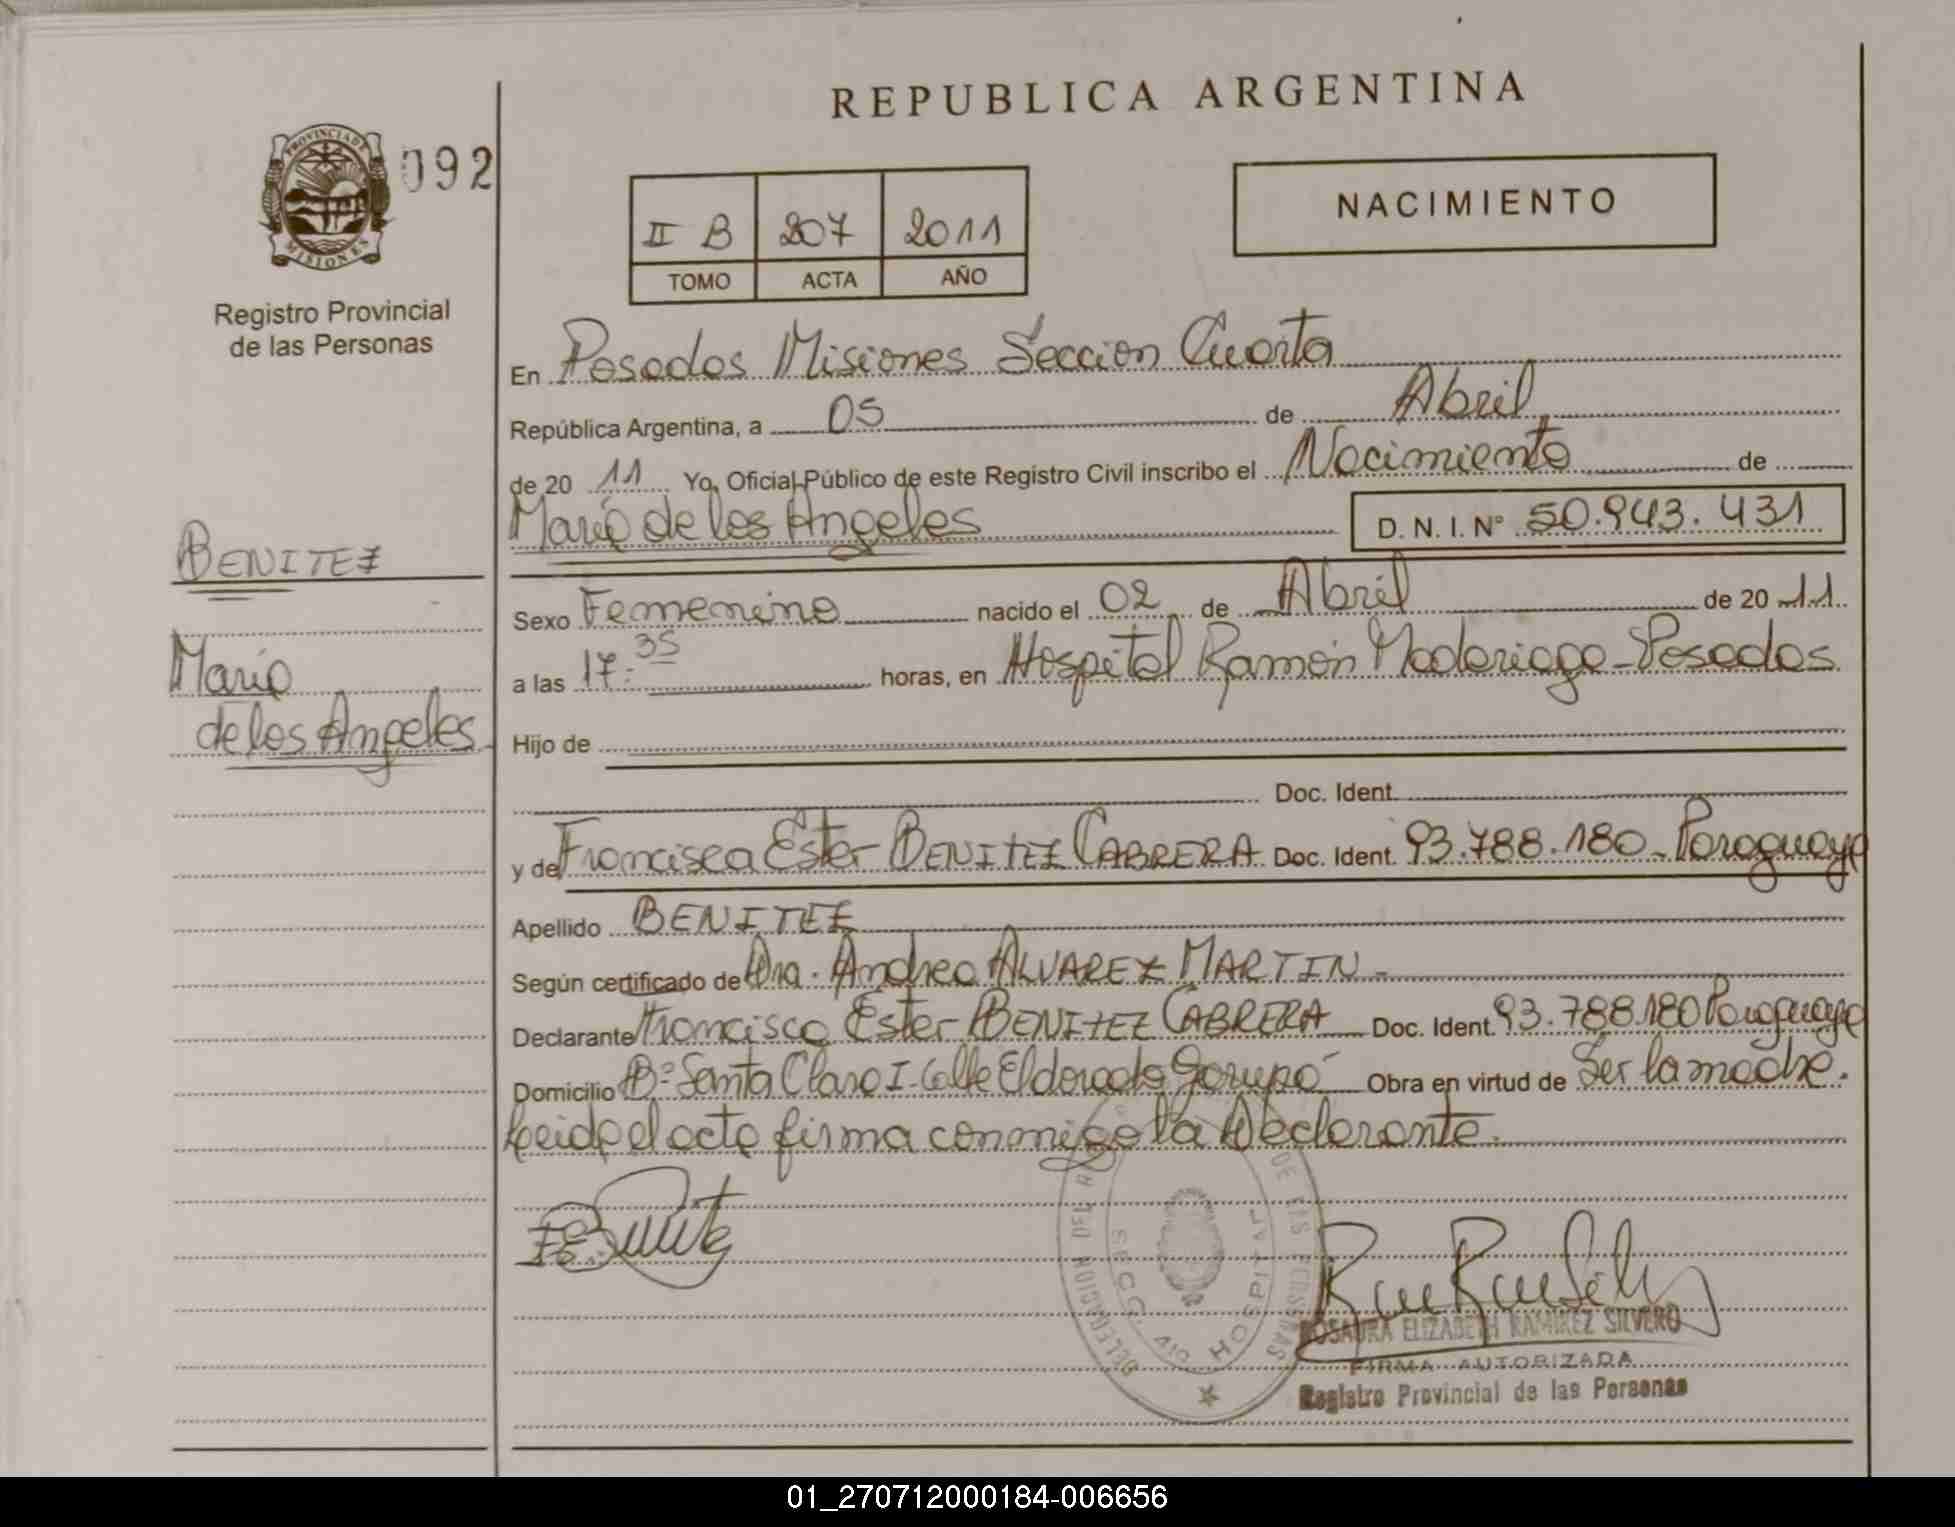 REPUBLICA ARGENTINA
PROVINCIA DE
MISIONES
092
Registro Provincial
de las Personas
II B 207 2011
TOMO ACTA AÑO
NACIMIENTO
BENITEZ
María
de los Angeles
En Posadas Misiones Sección Cuarta
República Argentina, a 05 de Abril
de 20 11 Yo, Oficial Público de este Registro Civil inscribo el Nacimiento de
María de los Angeles D. N. I. N° 50.943.431
Sexo Femenino nacido el 02 de Abril de 20 11
a las 17:35 horas, en Hospital Ramón Madariaga - Posadas
Hijo de
Doc. Ident.
y de Francisca Ester BENITEZ CABRERA Doc. Ident. 93.788.180 - Paraguaya
Apellido BENITEZ
Según certificado de Dra. Andrea ALVAREZ MARTIN -
Declarante Francisca Ester BENITEZ CABRERA Doc. Ident. 93.788.180 Paraguaya
Domicilio B° Santa Clara I - Calle Eldorado Garupá Obra en virtud de Ser la madre.
Leida el acta firma conmigo la Declarante.
DELEGACION DEL DE LAS PERSONAS
SECC. 4ta HOSPITAL
ROSAURA ELIZABETH RAMIREZ SILVERO
FIRMA AUTORIZADA
Registro Provincial de las Personas
01_270712000184-006656